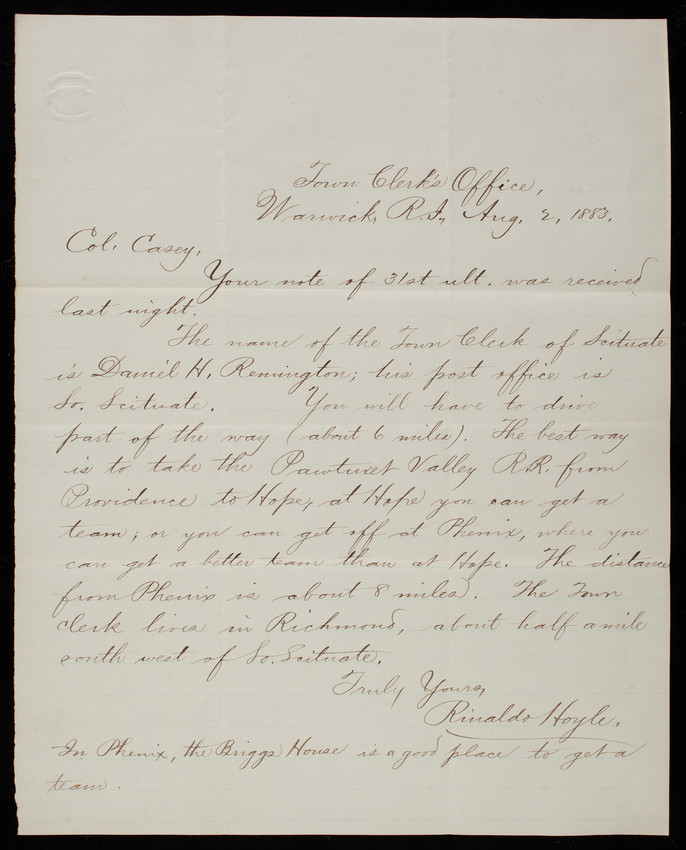 Town Clerk's Office,
Warwick, R.I., Aug. 2, 1883.
Col. Casey,
Your note of 31st ult. was received
last night.
The name of the Town Clerk of Scituate
is Daniel H. Remington; his post office is
So. Scituate. You will have to drive
part of the way (about 6 miles). The best way
is to take the Pawtuxet Valley R.R. from
Providence to Hope, at Hope you can get a
team; or you can get off at Phenix, where you
can get a better team than at Hope. The distance
from Phenix is about 8 miles. The Town
Clerk lives in Richmond, about half a mile
south west of So. Scituate.
Truly Yours,
Rinaldo Hoyle.
In Phenix, the Briggs House is a good place to get a
team.